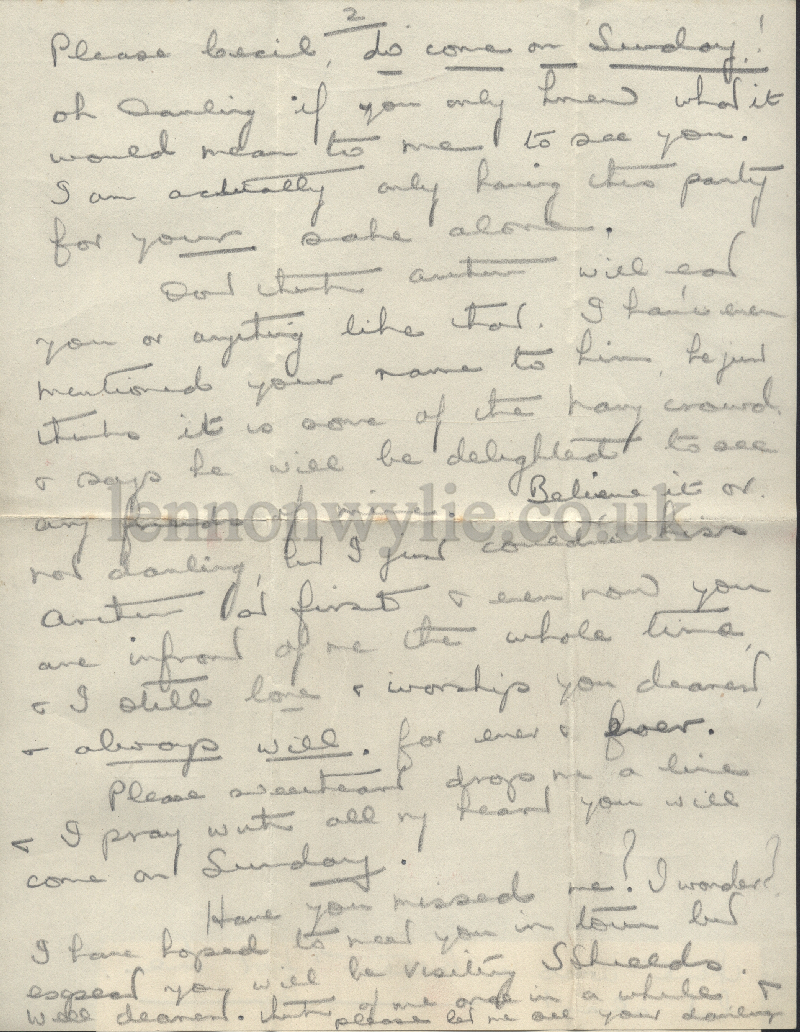 2
Please Cecil, do come on Sunday!!
oh Darling if you only knew what it
would mean to me to see you.
I am actually only having this party
for your sake alone.
Dont think Arthur will eat
you or anything like that. I haven't even
mentioned your name to him, he just
thinks it is some of the Navy crowd
& says he will be delighted to see
any friends of mine. Believe it or
lennonwylie.co.uk
not darling, but I just couldn't kiss
Arthur at first & even now you
are infront of me the whole time,
& I still love & worship you dearest,
& always will. for ever & ever.
Please sweetheart drop me a line
& I pray with all my heart you will
come on Sunday.
Have you missed me? I wonder?
I have hoped to meet you in town but
expect you will be visiting SShields.
Well dearest. think of me once in a while &
please let me see you darling